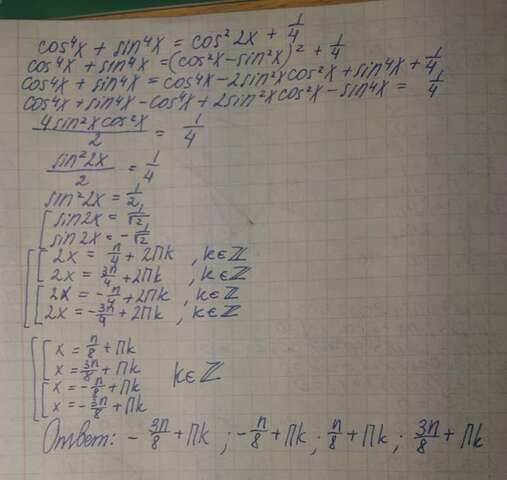 cos⁴x + sin⁴x = cos² 2x + 1/4
cos⁴x + sin⁴x = (cos²x - sin²x)² + 1/4
cos⁴x + sin⁴x = cos⁴x - 2sin²x cos²x + sin⁴x + 1/4
cos⁴x + sin⁴x - cos⁴x + 2sin²x cos²x - sin⁴x = 1/4
4sin²x cos²x / 2 = 1/4
sin²2x / 2 = 1/4
sin²2x = 1/2
[ sin2x = 1/√2
sin2x = - 1/√2
[ [ 2x = π/4 + 2πk , k∈ℤ
2x = 3π/4 + 2πk , k∈ℤ
[ 2x = - π/4 + 2πk , k∈ℤ
2x = - 3π/4 + 2πk , k∈ℤ
[ [ x = π/8 + πk
x = 3π/8 + πk
[ x = - π/8 + πk k∈ℤ
x = - 3π/8 + πk
Ответ: - 3π/8 + πk ; - π/8 + πk ; π/8 + πk ; 3π/8 + πk